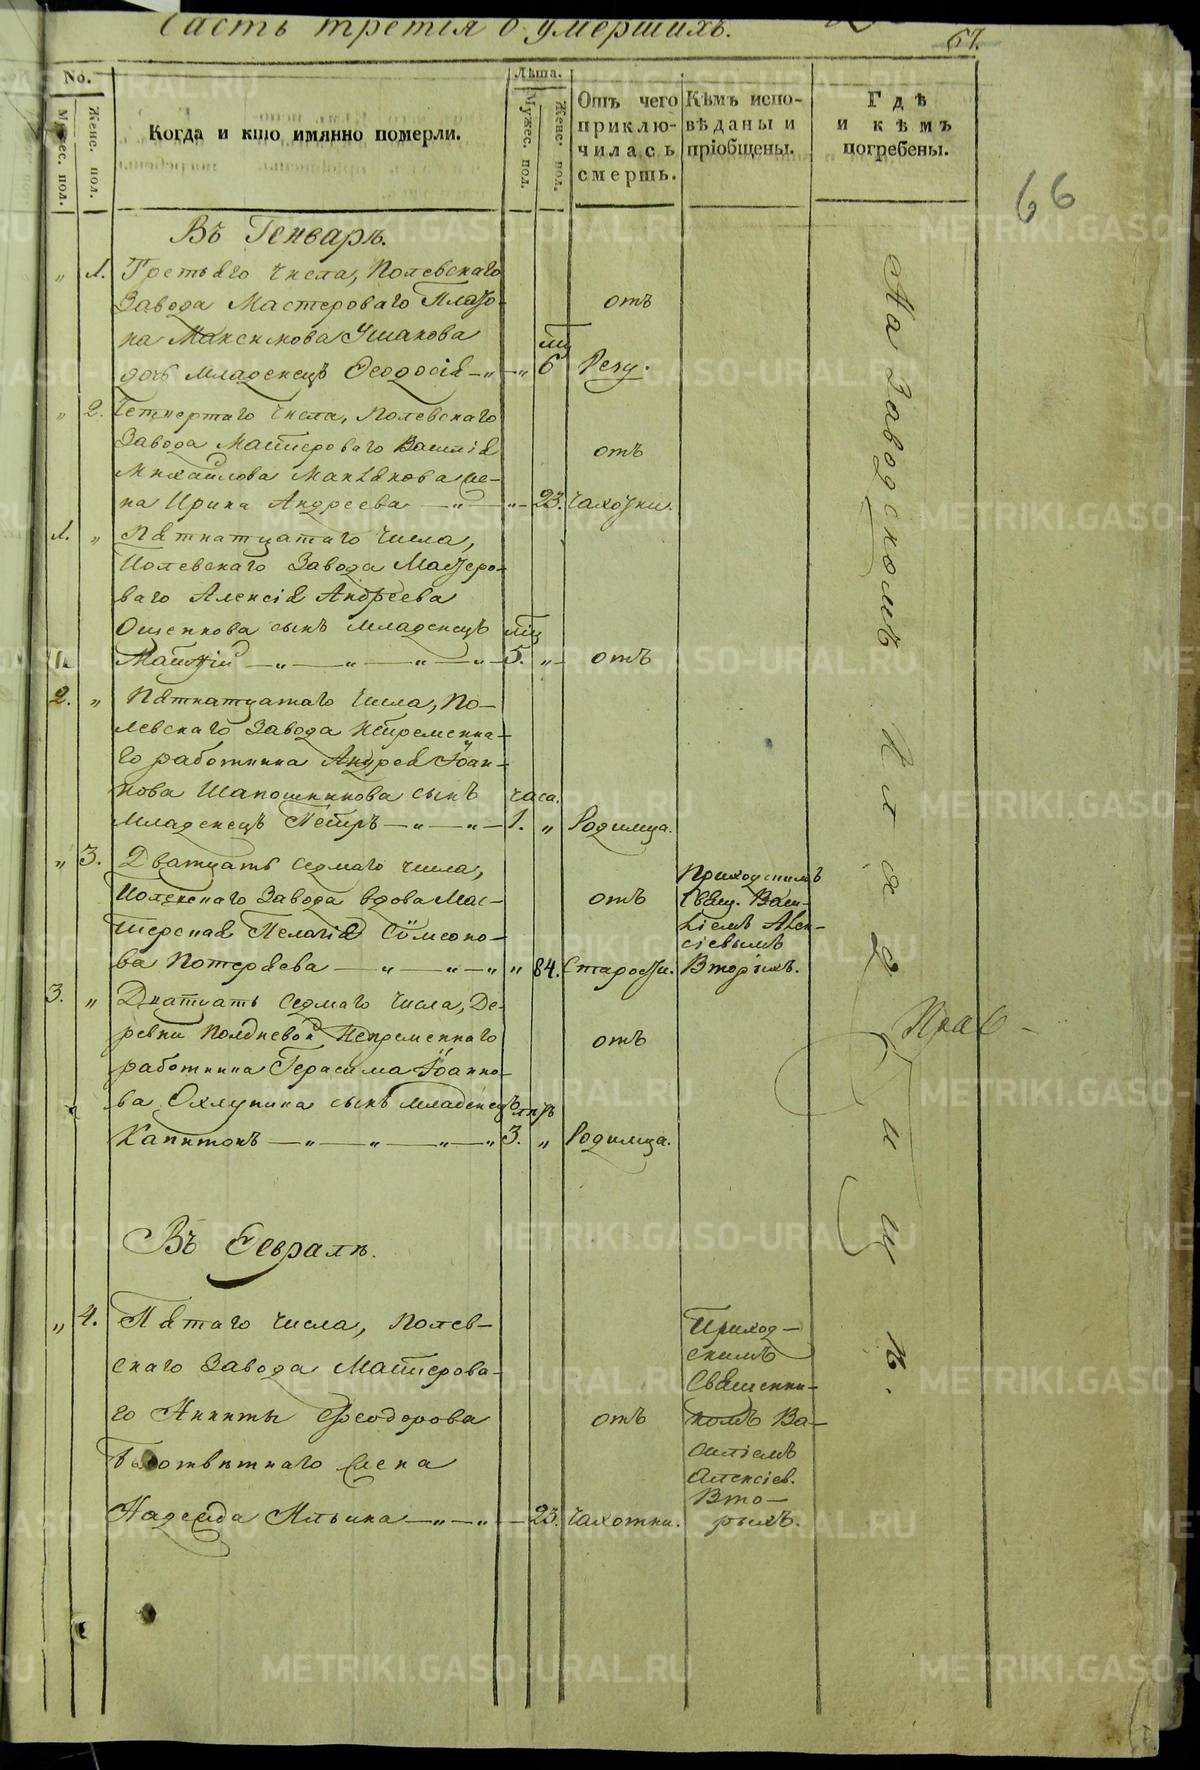 Часть третія о умершихъ.
67.
66
No.
Мужес. пол.
Женс. пол.
Когда и кто имянно померли.
Лѣта.
Мужес. пол.
Женс. пол.
Отъ чего
приклю-
чилась
смерть.
Кѣмъ испо-
вѣданы и
пріобщены.
Гдѣ
и кѣмъ
погребены.
Въ Генварѣ.
„ 1. Третьяго числа, Полевскаго
Завода Мастероваго Плато-
на Максимова Ушакова
дочь младенецъ Ѳеодосія —„—„ 6
отъ
Резу.
„ 2. Четвертаго числа, Полевскаго
Завода Мастероваго Василія
Михайлова же-
на Ирина Андреева —„—„— 23.
отъ
Чахотки.
1. „ Пятнатцатаго числа,
Полевскаго Завода Мастеро-
ваго Алексія Андреева
сынъ младенецъ
—„—„—„—„— 5. „
отъ
2. „ Пятнатцатаго числа, По-
левскаго Завода Непременна-
го работника Андрея Іоан-
нова Шапошникова сынъ часа.
младенецъ Петръ —„—„— 1. „
Родимца.
„ 3. Дватцать седмаго числа,
Полевскаго Завода вдова Мас-
терская Пелагія Сѵмеоно-
ва Потеряева —„—„—„ „ 84.
отъ
Старости.
Приходскимъ
Свящ. Васи-
ліемъ Алек-
сіевымъ
Вторыхъ.
3. „ Дватцать седмаго числа, Де-
ревни Полдневой Непременнаго
работника Герасима Іоанно-
ва Охлупина сынъ младенецъ
Капитонъ —„—„—„—„ 3. „
отъ
Родимца.
Въ Февралѣ.
„ 4. Пятаго числа, Полев-
скаго Завода Мастерова-
го Никиты Ѳеодорова
Безответнаго жена
Надежда Ильина —„—„— 23.
отъ
Чахотки.
Приход-
скимъ
Священни-
комъ Ва-
силіемъ
Алексіев.
Вто-
рыхъ.
На Заводскомъ Кладбищѣ.